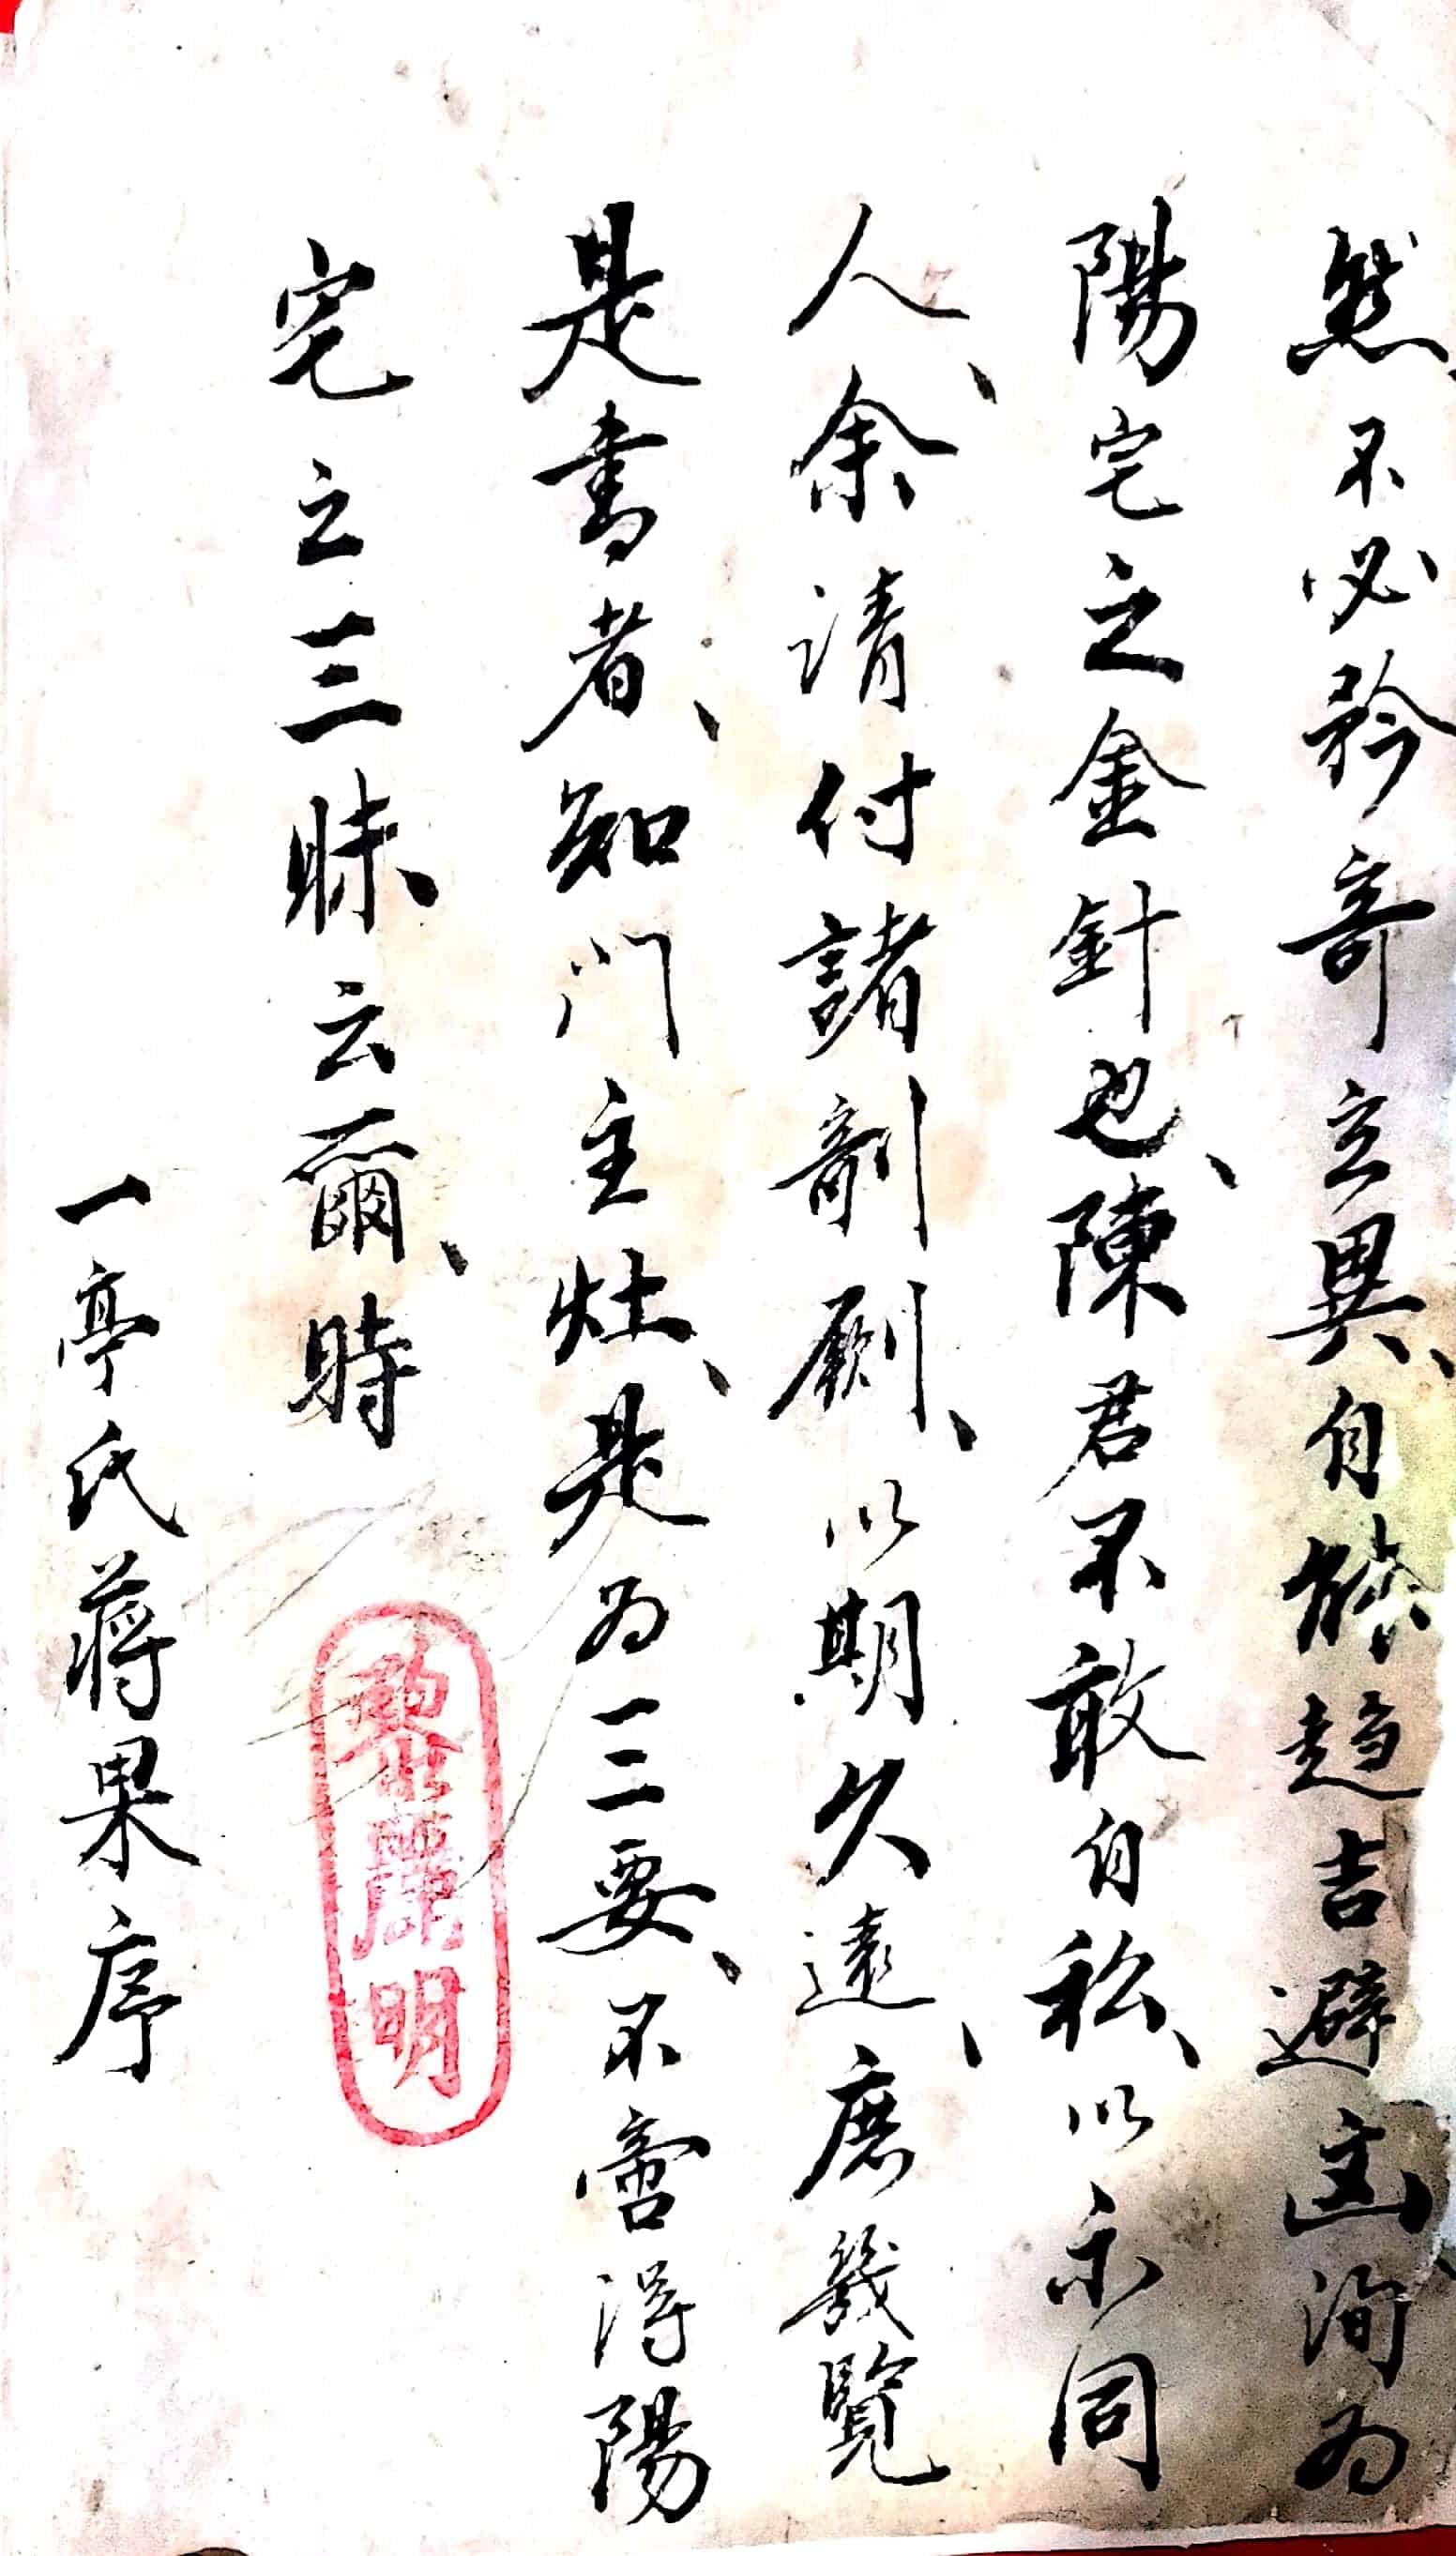 然、不必矜奇立異、自能趋吉避凶、洵为
陽宅之金針也、陳君不敢自私、以示同
人、余請付諸剞劂、以期久遠、庶幾覽
是書者、知门主灶、是为三要、不啻得陽
宅之三昧云爾、時
一亭氏蔣果序
黎明